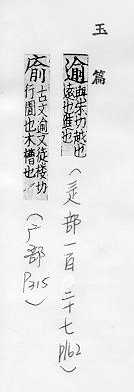 玉篇
逾 與朱切越也
遠也進也
(辵部一百二十七 P162)
㢏 古文逾又徒樓切
行圊也木槽也
(广部 P315)